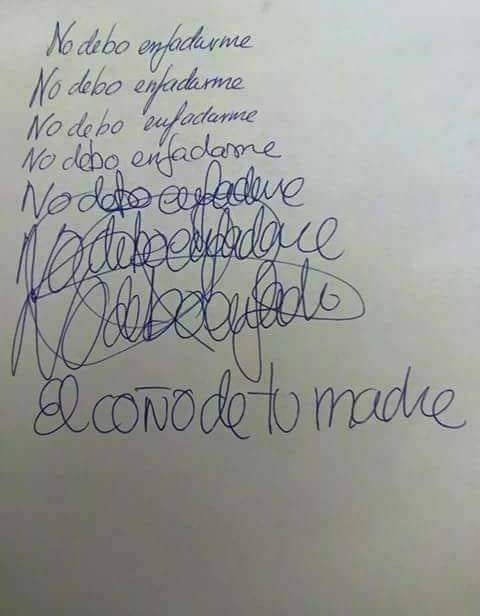 No debo enfadarme
No debo enfadarme
No debo enfadarme
No debo enfadarme
No debo
No debo
No debo
El coño de tu madre